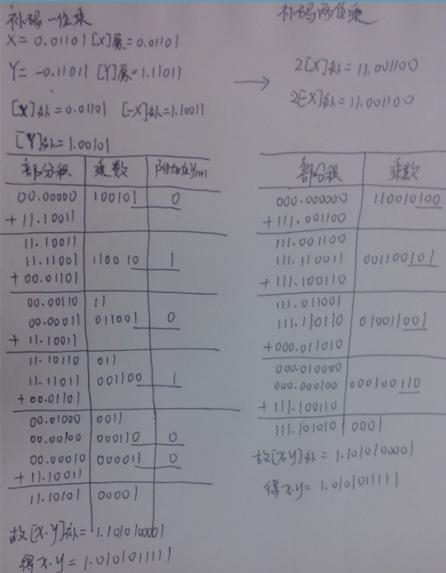 补码一位乘
X = 0.01101 [X]原=0.01101
Y= -0.11011 [Y]原=1.11011
[X]补=0.01101 [-X]补=1.10011
[Y]补=1.00101
部分积 乘数 附加位yn+1
00.00000 100101 0
+ 11.10011
11.10011
11.11001 110010 1
+ 00.01101
00.00110 11
00.00011 011001 0
+ 11.10011
11.10110 011
11.11011 001100 1
+ 00.01101
00.01000 0011
00.00100 000110 0
00.00010 000011 0
+ 11.10011
11.10101 00001
故[X.Y]补=1.1010100001
得X.Y= 1.0101011111
补码两位乘
→ 2[X]补=11.001100
2[-X]补=11.001100
部分积 乘数
000.000000 110010100
+ 111.001100
111.001100
111.110011 001100101
+ 111.100110
111.011001
111.110110 010011001
+000.011010
000.010000
000.000100 000100110
+ 111.100110
111.101010 0001
故[X.Y]补= 1.1010100001
得X.Y= 1.0101011111